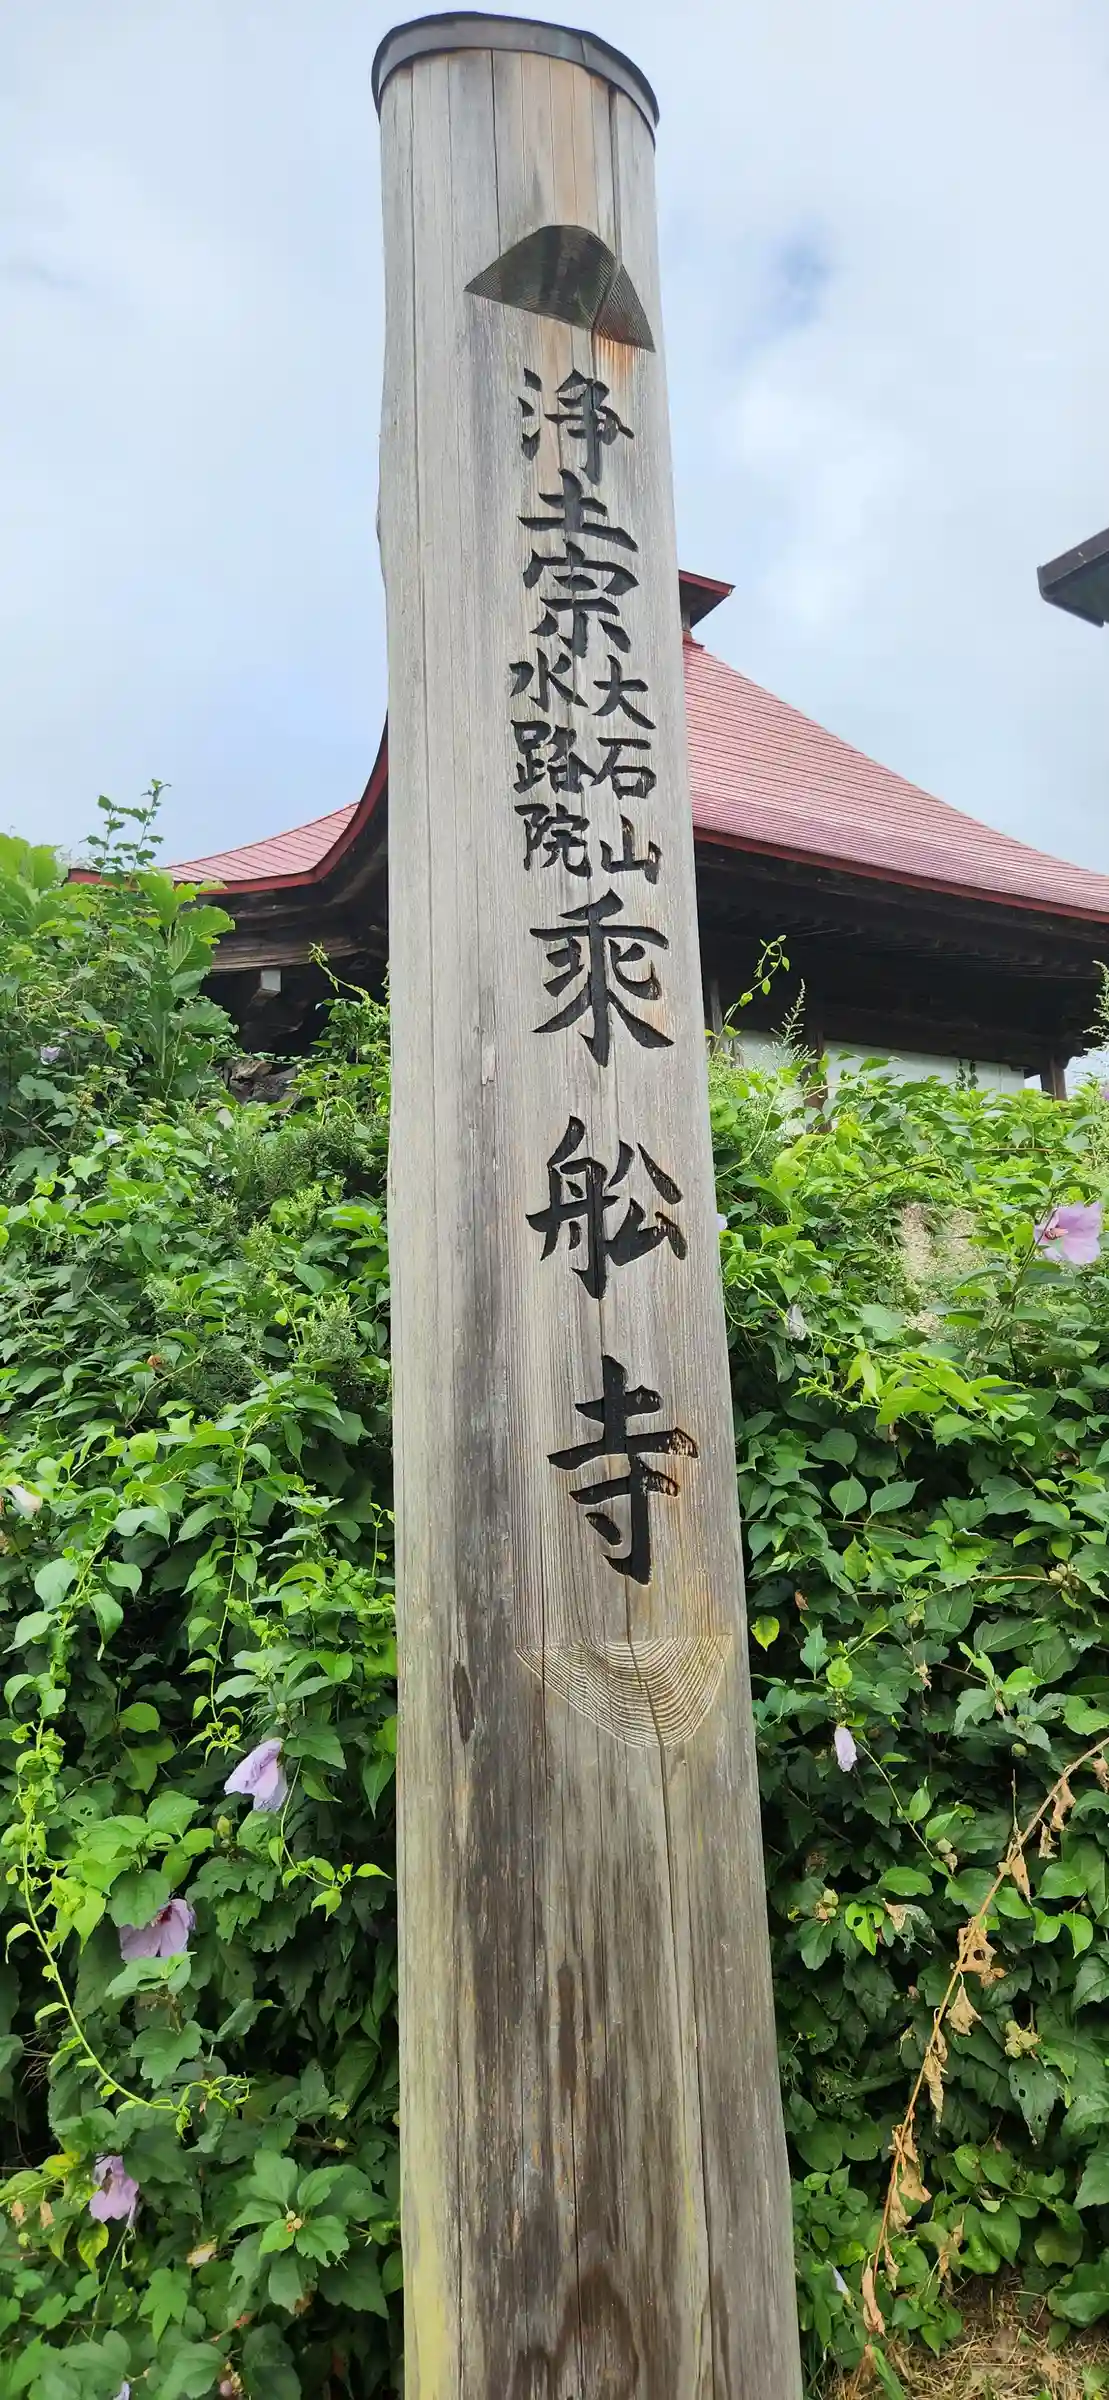 浄土宗
大石山
水路院
乗舩寺